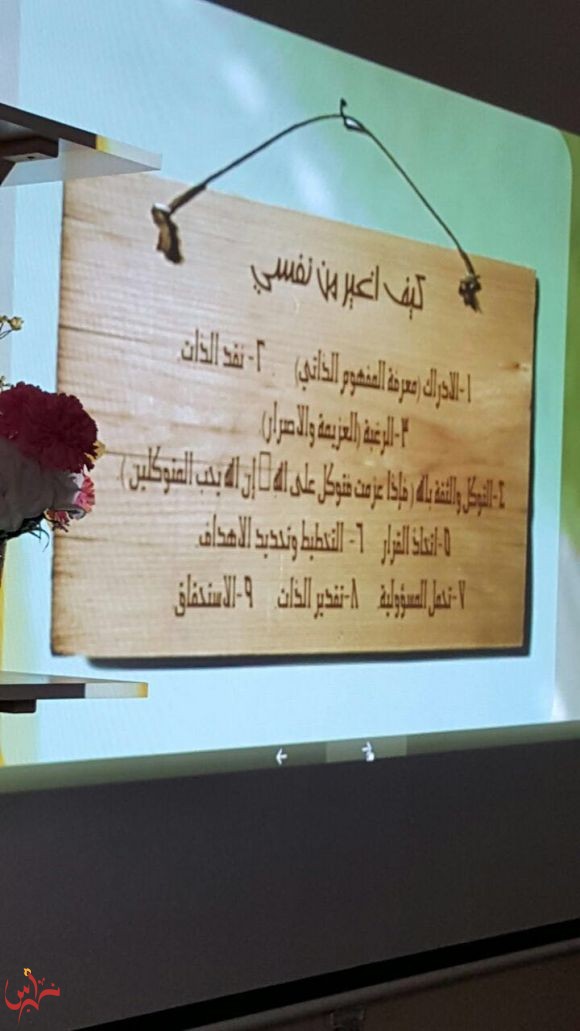 كيف اغير من نفسي
١-الادراك (معرفة المفهوم الذاتي) ٢- نقد الذات
٣-الرغبة (العزيمة والاصرار)
٤-التوكل والثقة بالله ( فإذا عزمت فتوكل على الله إن الله يحب المتوكلين )
٥-اتخاذ القرار ٦- التخطيط وتحديد الاهداف
٧-تحمل المسؤولية ٨-تقدير الذات ٩-الاستحقاق
نبراس